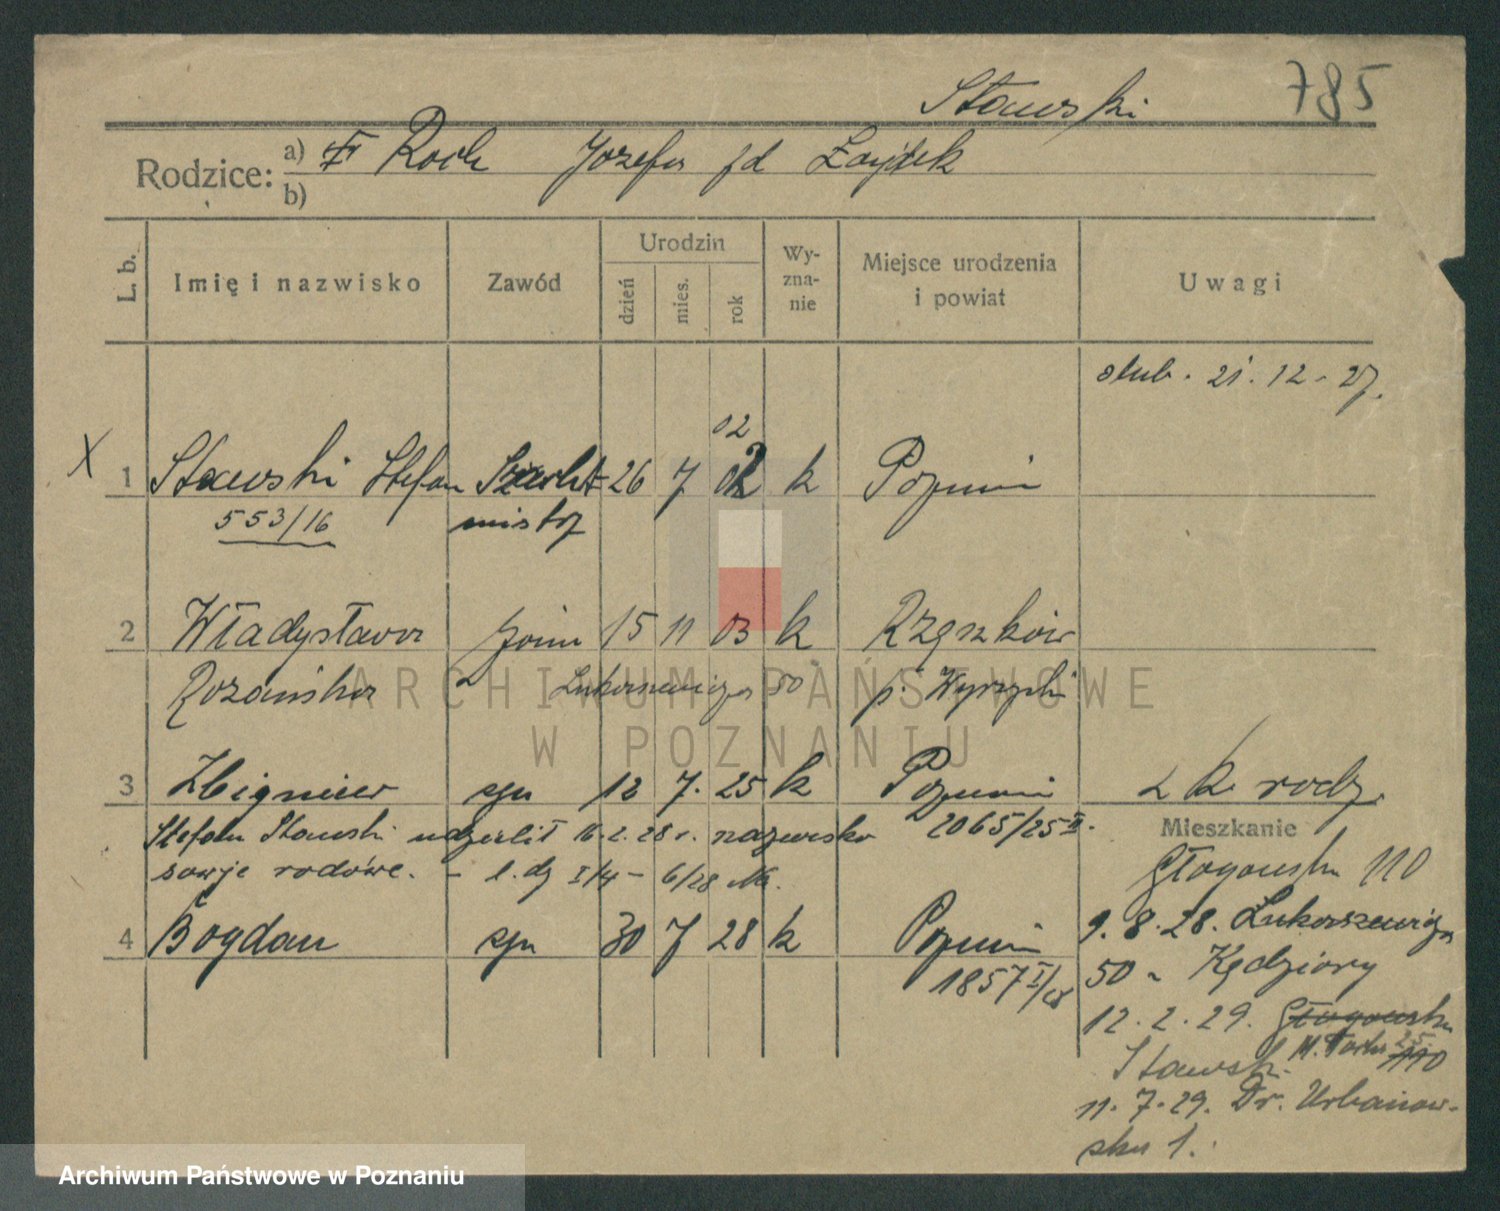 785
Stawski
Rodzice: a) Roch Józefa Zajdek
b)
L. b. Imię i nazwisko Zawód Urodzin dzień mies. rok Wyznanie Miejsce urodzenia i powiat Uwagi
ślub. 21. 12. 27.
02
X 1 Stawski Stefan 26 7 02 k Poznań
553/16 mistrz
2 Władysława żona 15 11 03 k
Rożańska Łukaszewicza 50 p. Wyrzyski
ARCHIWUM PAŃSTWOWE
W POZNANIU
3 Zbigniew syn 12 7. 25 k Poznań k. rodz.
Stefan Stawski udzielił 16. 2. 28 r. nazwisko 2065/25 II. Mieszkanie
swoje rodowe. - l. dz I/4 - 6/28 Głogowska 110
4 Bogdan syn 30 7 28 k Poznań 9. 8. 28. Łukaszewicza
1857 I/28 50 - Kędziory
12. 2. 29. Głogowska
110
Stawsk.
11. 7. 29. Dr. Urbanow-
ska 1.
Archiwum Państwowe w Poznaniu